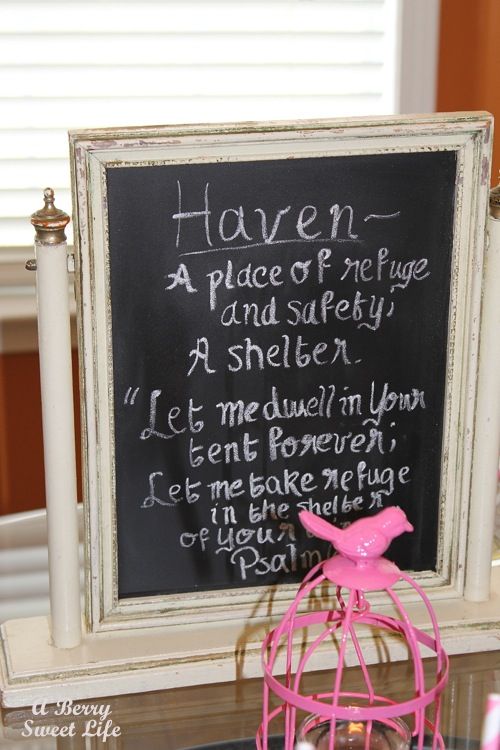 Haven~
A place of refuge
and safety;
A shelter.
"Let me dwell in Your
tent forever;
Let me take refuge
in the shelter
of your
Psalm
A Berry
Sweet Life